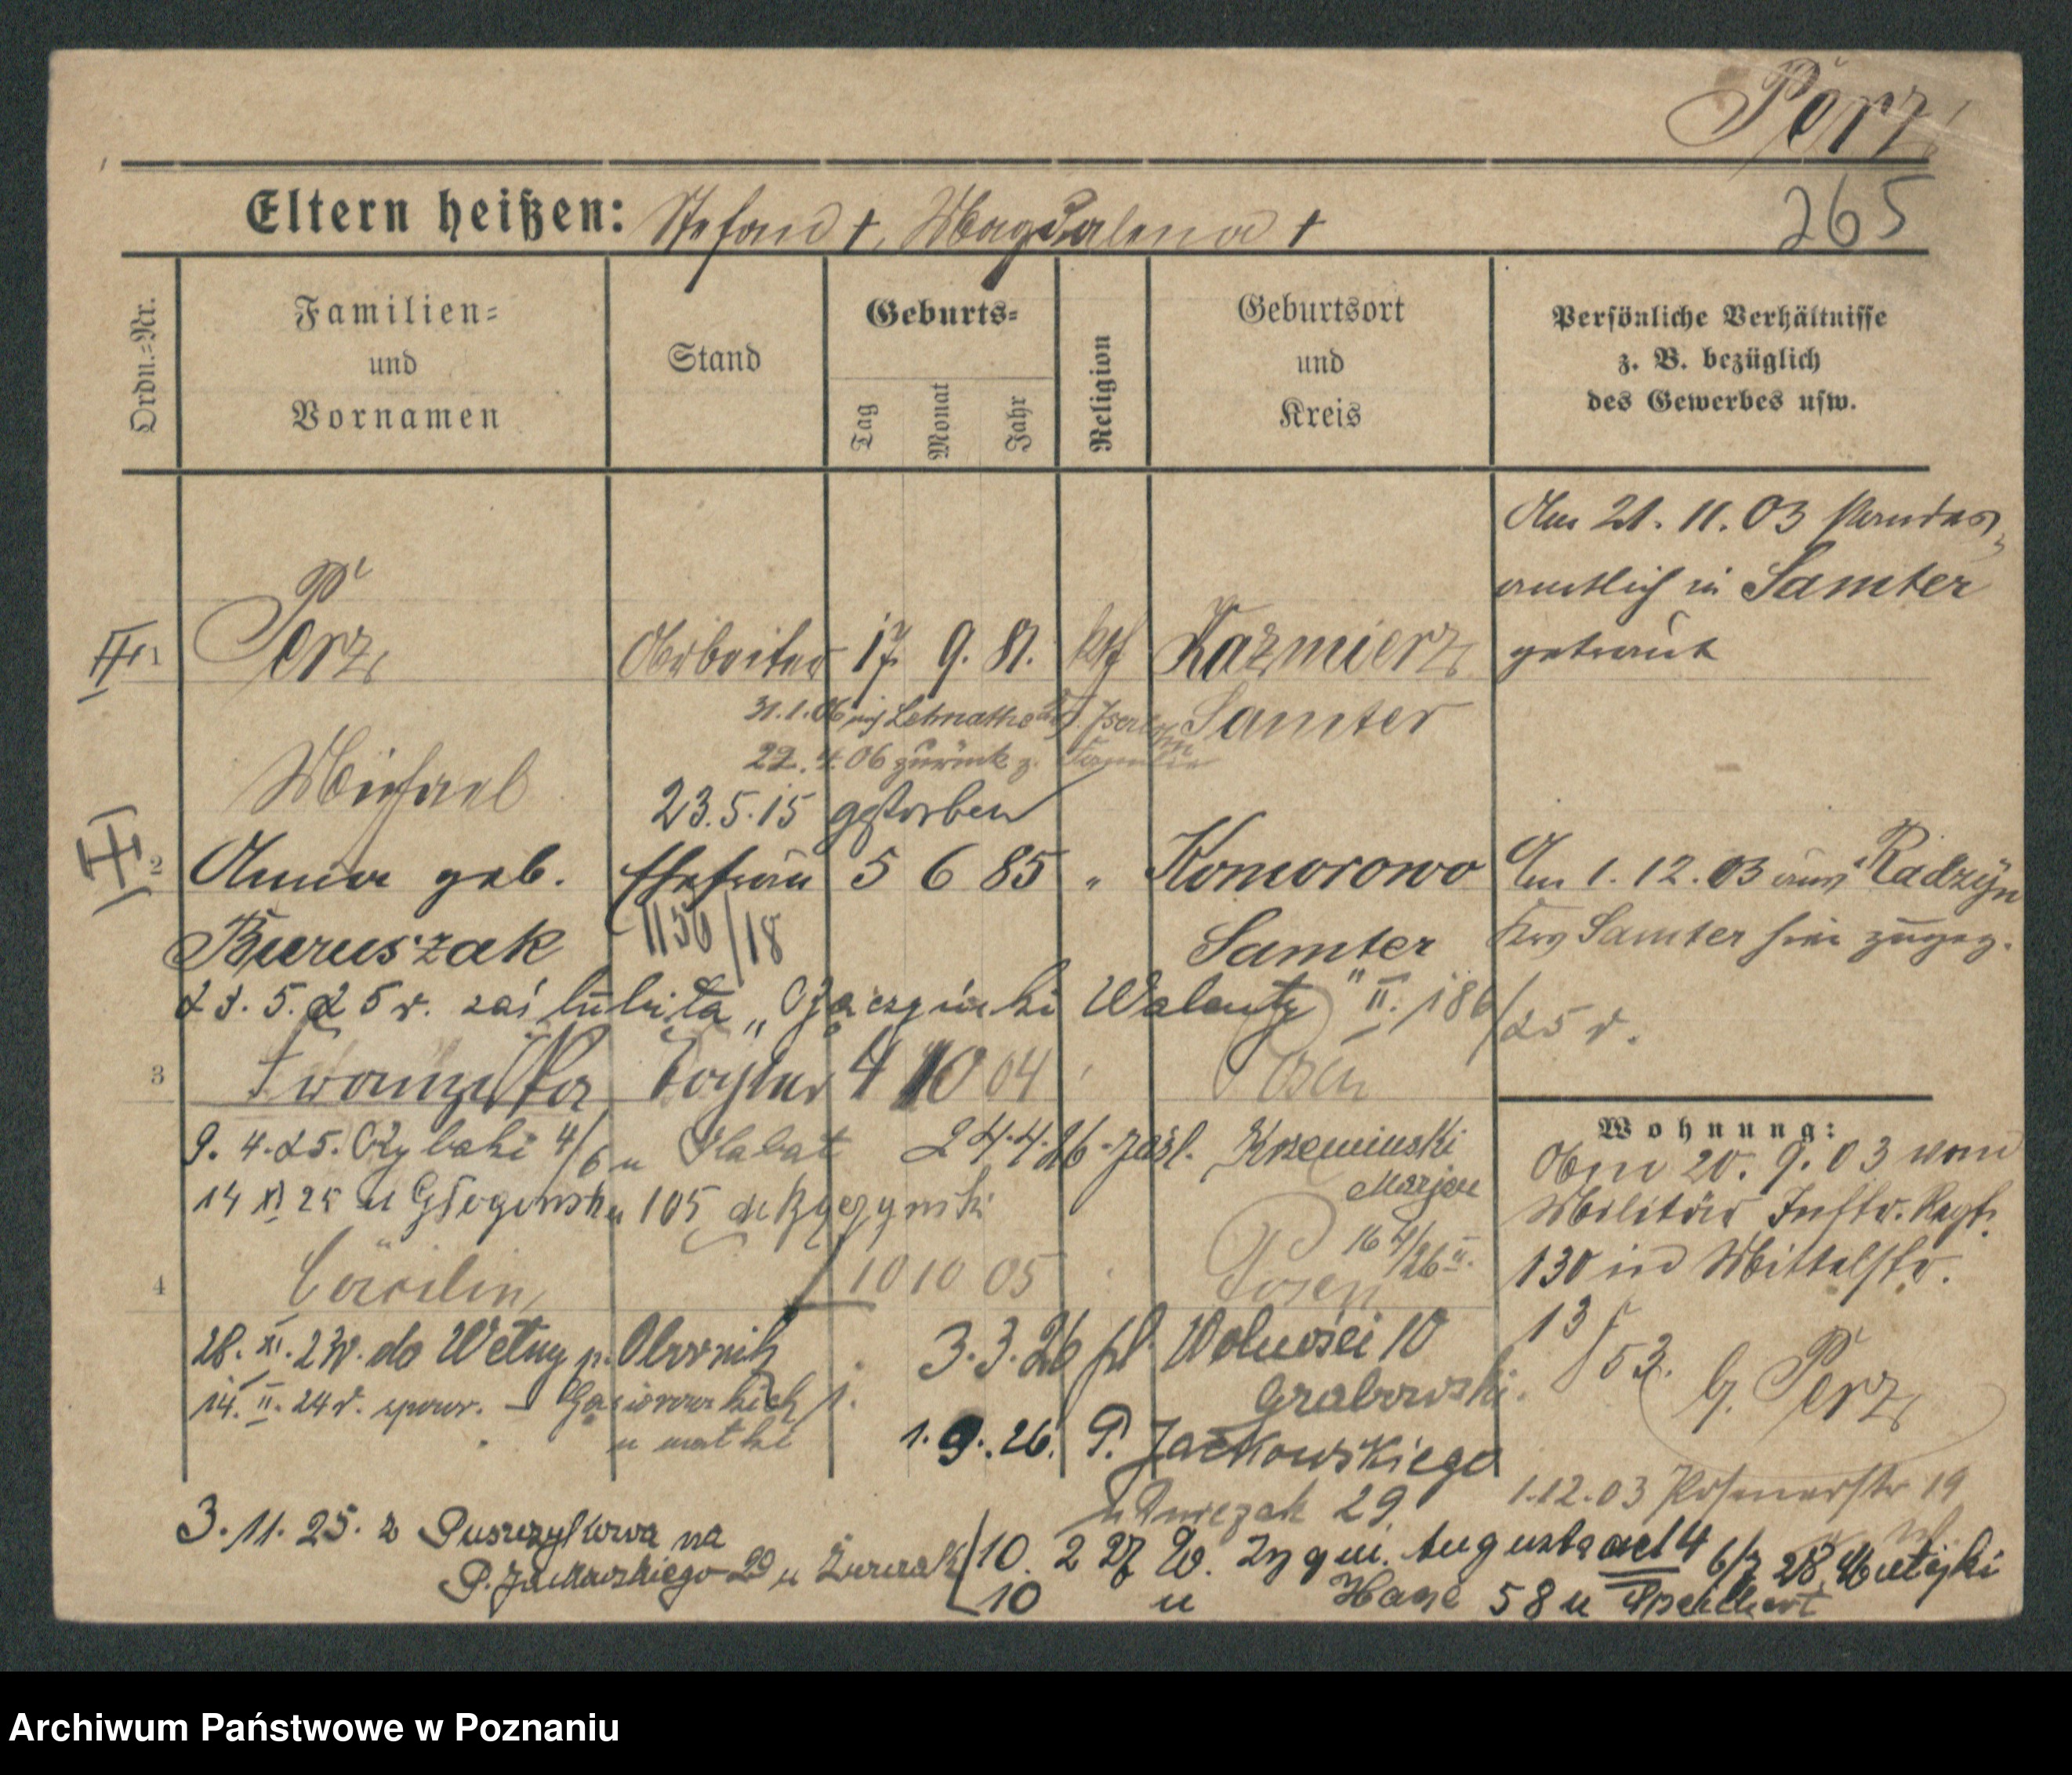 Perz
265
Eltern heißen: Stefan †, Magdalena †
Ordn.=Nr.
Familien=
und
Vornamen
Stand
Geburts=
Tag
Monat
Jahr
Religion
Geburtsort
und
Kreis
Persönliche Verhältnisse
z. B. bezüglich
des Gewerbes usw.
1 Perz Arbeiter 17. 9. 81. kth Kazmierz
Samter
Michael
Am 21. 11. 03 standes
amtlich in Samter
getraut
31.1.06
22.4.06 zurück z. Familie
23.5.15 gestorben
2 Anna geb. Ehefrau 5 6 85 " Komorowo
Buruszak 1156/18 Samter
Am 1. 12. 03 aus Radzyn
Krs Samter hier zugez.
23. 5. 25 r. zaślubiła " Walenty " II. 186/25 r.
3 Franziska Tochter 4 10 04 Posen
9. 4. 25. 4/6 u 24.4.26 Jasl.
Marjan
14 XI 25 u 105
16 4/26 II.
4 Cäcilia 10 10 05 Posen
28. XI. 23r. do Wełny p. Obornik 3.3.26 pl. Wolności 10
Grabowski.
14. II. 24 r. spowr. - Gąsiorowskich
u matki
1. 9. 26. P. Jackowskiego
29
Wohnung:
Am 20. 9. 03 vom
Militär Inftr. Regt.
130 in Mittelstr.
13
53. b. Perz
1.12.03 Posenerstr 19
3. 11. 25. z Puszczykowa na
P. Jackowskiego 29 u Żurczak
10. 2 27 W. Zygm. Augusta 4 6/3 28
10 u 58 u
Archiwum Państwowe w Poznaniu